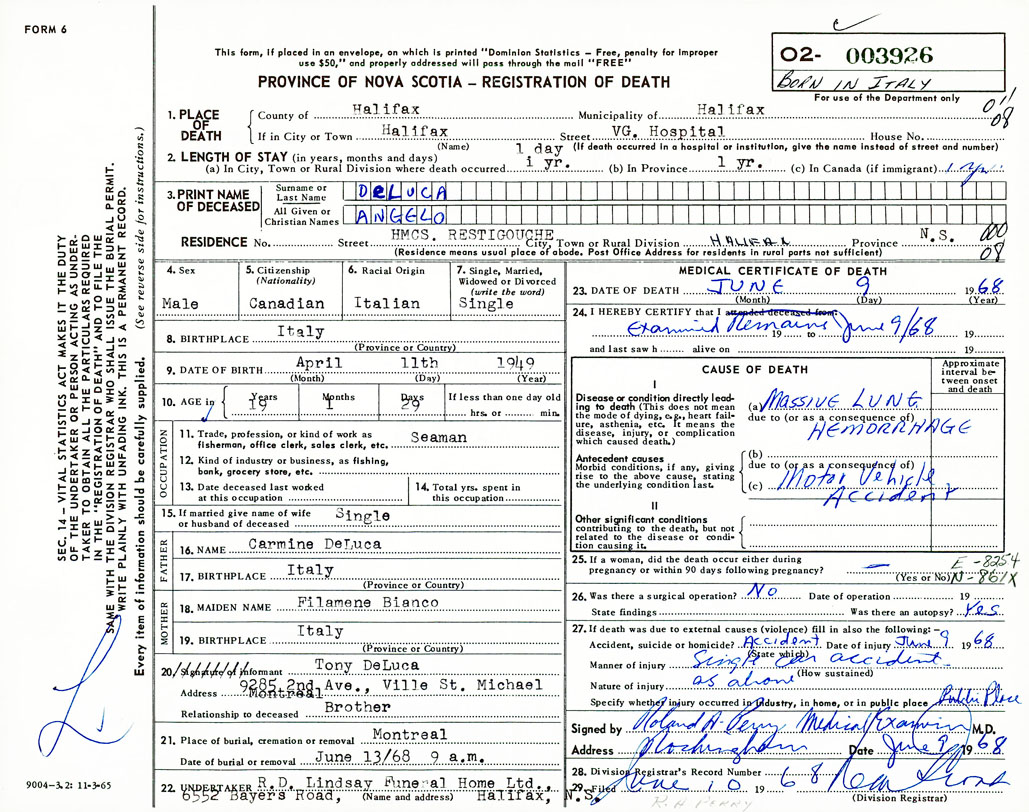 FORM 6
This form, if placed in an envelope, on which is printed "Dominion Statistics – Free, penalty for improper
use $50," and properly addressed will pass through the mail "FREE"
PROVINCE OF NOVA SCOTIA – REGISTRATION OF DEATH
02- 003926
BORN IN ITALY
For use of the Department only
011
08
1. PLACE OF DEATH
County of Halifax Municipality of Halifax
If in City or Town Halifax Street VG. Hospital House No.
(Name) 1 day (If death occurred in a hospital or institution, give the name instead of street and number)
2. LENGTH OF STAY (in years, months and days)
(a) In City, Town or Rural Division where death occurred 1 yr. (b) In Province 1 yr. (c) In Canada (if immigrant)
3. PRINT NAME OF DECEASED
Surname or Last Name DeLUCA
All Given or Christian Names ANGELO
RESIDENCE No. Street HMCS. RESTIGOUCHE City, Town or Rural Division HALIFAX Province N.S. 000
(Residence means usual place of abode. Post Office Address for residents in rural parts not sufficient) 08
4. Sex Male
5. Citizenship (Nationality) Canadian
6. Racial Origin Italian
7. Single, Married, Widowed or Divorced (write the word) Single
8. BIRTHPLACE Italy
(Province or Country)
9. DATE OF BIRTH April 11th 1949
(Month) (Day) (Year)
10. AGE in Years 19 Months 1 Days 29 If less than one day old
hrs. or min.
OCCUPATION
11. Trade, profession, or kind of work as fisherman, office clerk, sales clerk, etc. Seaman
12. Kind of industry or business, as fishing, bank, grocery store, etc.
13. Date deceased last worked at this occupation
14. Total yrs. spent in this occupation
15. If married give name of wife or husband of deceased Single
FATHER
16. NAME Carmine DeLuca
17. BIRTHPLACE Italy
(Province or Country)
MOTHER
18. MAIDEN NAME Filamene Bianco
19. BIRTHPLACE Italy
(Province or Country)
20. Signature of informant Tony DeLuca
Address 9285 2nd Ave., Ville St. Michael
Montreal
Relationship to deceased Brother
21. Place of burial, cremation or removal Montreal
Date of burial or removal June 13/68 9 a.m.
22. UNDERTAKER R.D. Lindsay Funeral Home Ltd.,
6552 Bayers Road, (Name and address) Halifax, N.S.
MEDICAL CERTIFICATE OF DEATH
23. DATE OF DEATH JUNE 9 1968
(Month) (Day) (Year)
24. I HEREBY CERTIFY that I attended deceased from:
Examined Remains 19 to June 9/68 19
and last saw h alive on 19
CAUSE OF DEATH
Approximate interval between onset and death
I
Disease or condition directly leading to death (This does not mean the mode of dying, e.g., heart failure, asthenia, etc. It means the disease, injury, or complication which caused death.)
(a) MASSIVE LUNG
due to (or as a consequence of)
HEMORRHAGE
Antecedent causes
Morbid conditions, if any, giving rise to the above cause, stating the underlying condition last.
(b)
due to (or as a consequence of)
(c) Motor Vehicle
Accident
II
Other significant conditions
contributing to the death, but not related to the disease or condition causing it.
25. If a woman, did the death occur either during pregnancy or within 90 days following pregnancy? —
(Yes or No)
E -8254
N -861X
26. Was there a surgical operation? No Date of operation 19
State findings Was there an autopsy? Yes
27. If death was due to external causes (violence) fill in also the following:–
Accident, suicide or homicide? Accident Date of injury June 9 1968
(State which)
Manner of injury Single car accident
(How sustained)
Nature of injury as above
Specify whether injury occurred in industry, in home, or in public place Public Place
Signed by Roland A. Perry Medical Examiner M.D.
Address Date June 9 1968
28. Division Registrar's Record Number
29. Filed June 10 1968
(Division Registrar)
R.H PERRY
SEC. 14 – VITAL STATISTICS ACT MAKES IT THE DUTY
OF THE UNDERTAKER OR PERSON ACTING AS UNDER-
TAKER TO OBTAIN ALL THE PARTICULARS REQUIRED
IN THE "REGISTRATION OF DEATH" AND TO FILE THE
SAME WITH THE DIVISION REGISTRAR WHO SHALL ISSUE THE BURIAL PERMIT.
WRITE PLAINLY WITH UNFADING INK. THIS IS A PERMANENT RECORD.
Every item of information should be carefully supplied. (See reverse side for instructions.)
9004-3.2: 11-3-65